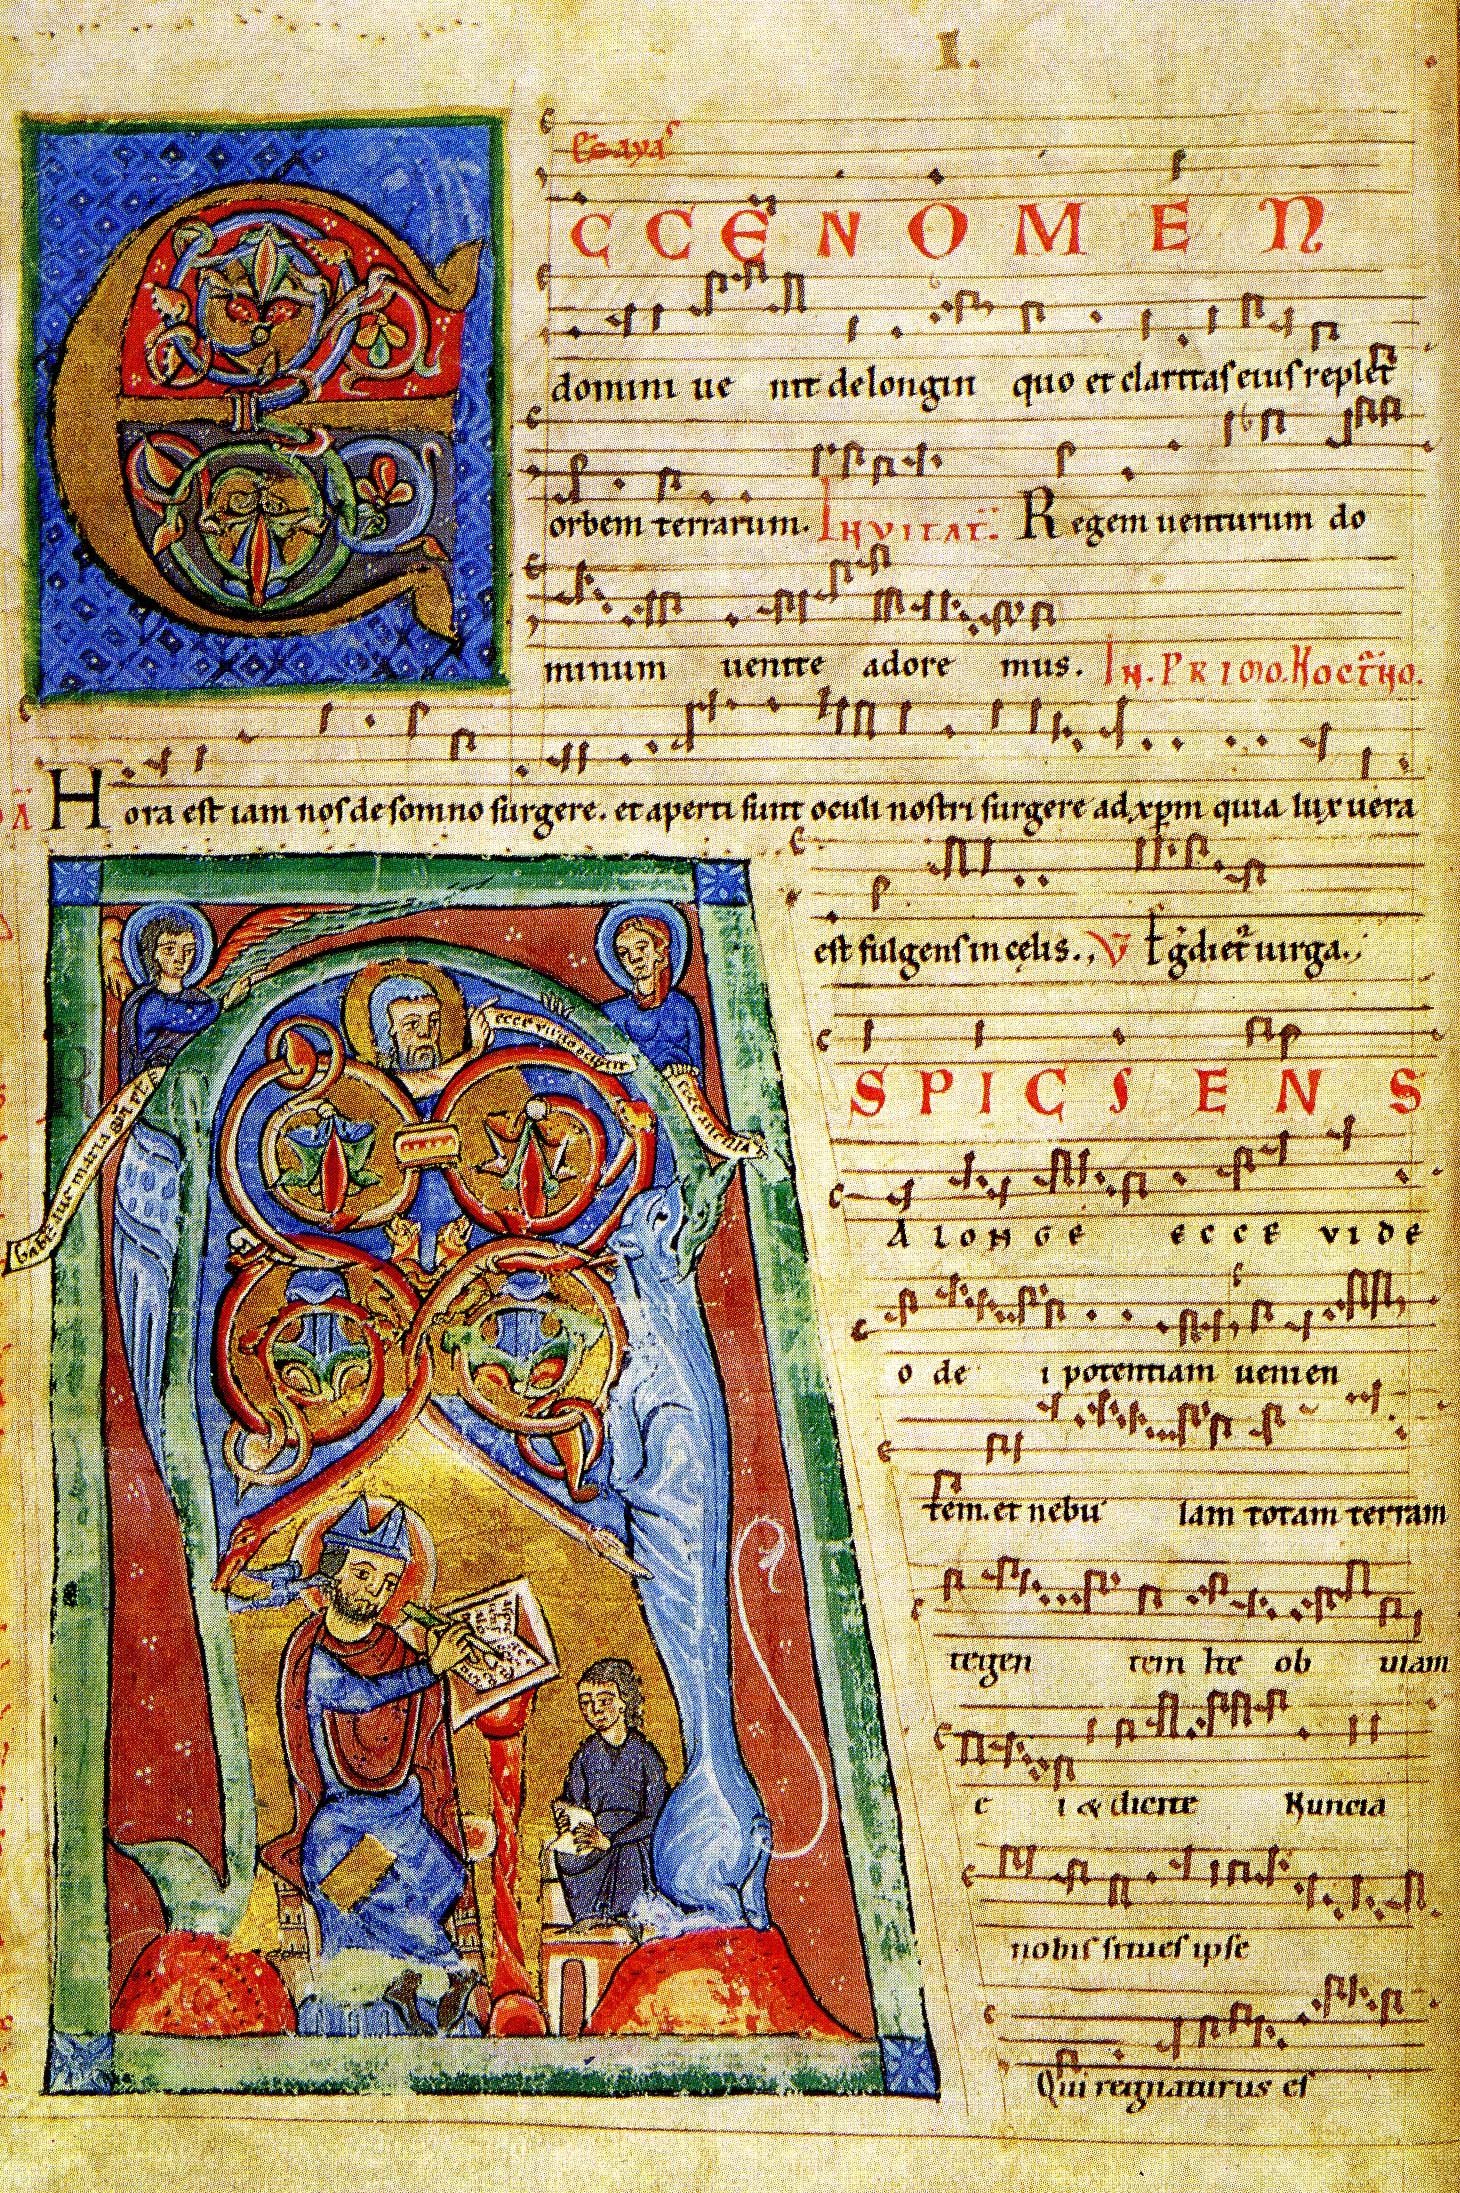 I.
Esayas
E CCE NOMEN
domini ue nit de longin quo et claritas eius replet
orbem terrarum. INVITAT. Regem uenturum do
minum uenite adore mus. IN. PRIMO. NOCT̄NO.
Ā Hora est iam nos de somno surgere. et aperti sunt oculi nostri surgere ad xp̄m quia lux uera
est fulgens in celis. V̄ Egdiet uirga.
ecce uirgo
A SPICIENS
A LONGE ECCE VIDE
o de i potentiam uenien
tem. et nebu lam totam terram
tegen tem Ite ob uiam
e i & dicite Nuncia
nobis si tu es ipse
Qui regnaturus es